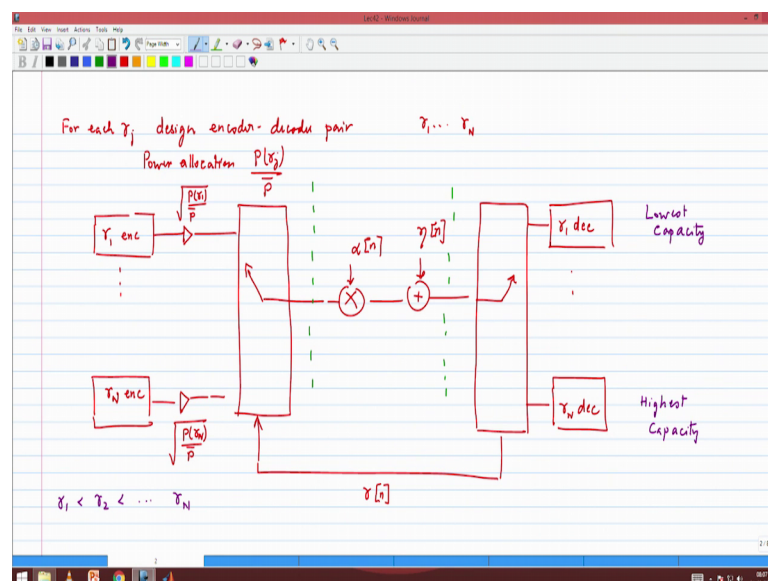 Lec42 - Windows Journal
File Edit View Insert Actions Tools Help
Page Width
B I
For each γj design encoder-decoder pair γ1 ... γN
Power allocation P(γj)/P̄
√P(γ1)/P̄
γ1 enc
α[n]
η[n]
γ1 dec
Lowest
Capacity
×
+
γN enc
√P(γN)/P̄
γN dec
Highest
Capacity
γ[n]
γ1 < γ2 < ... γN
2